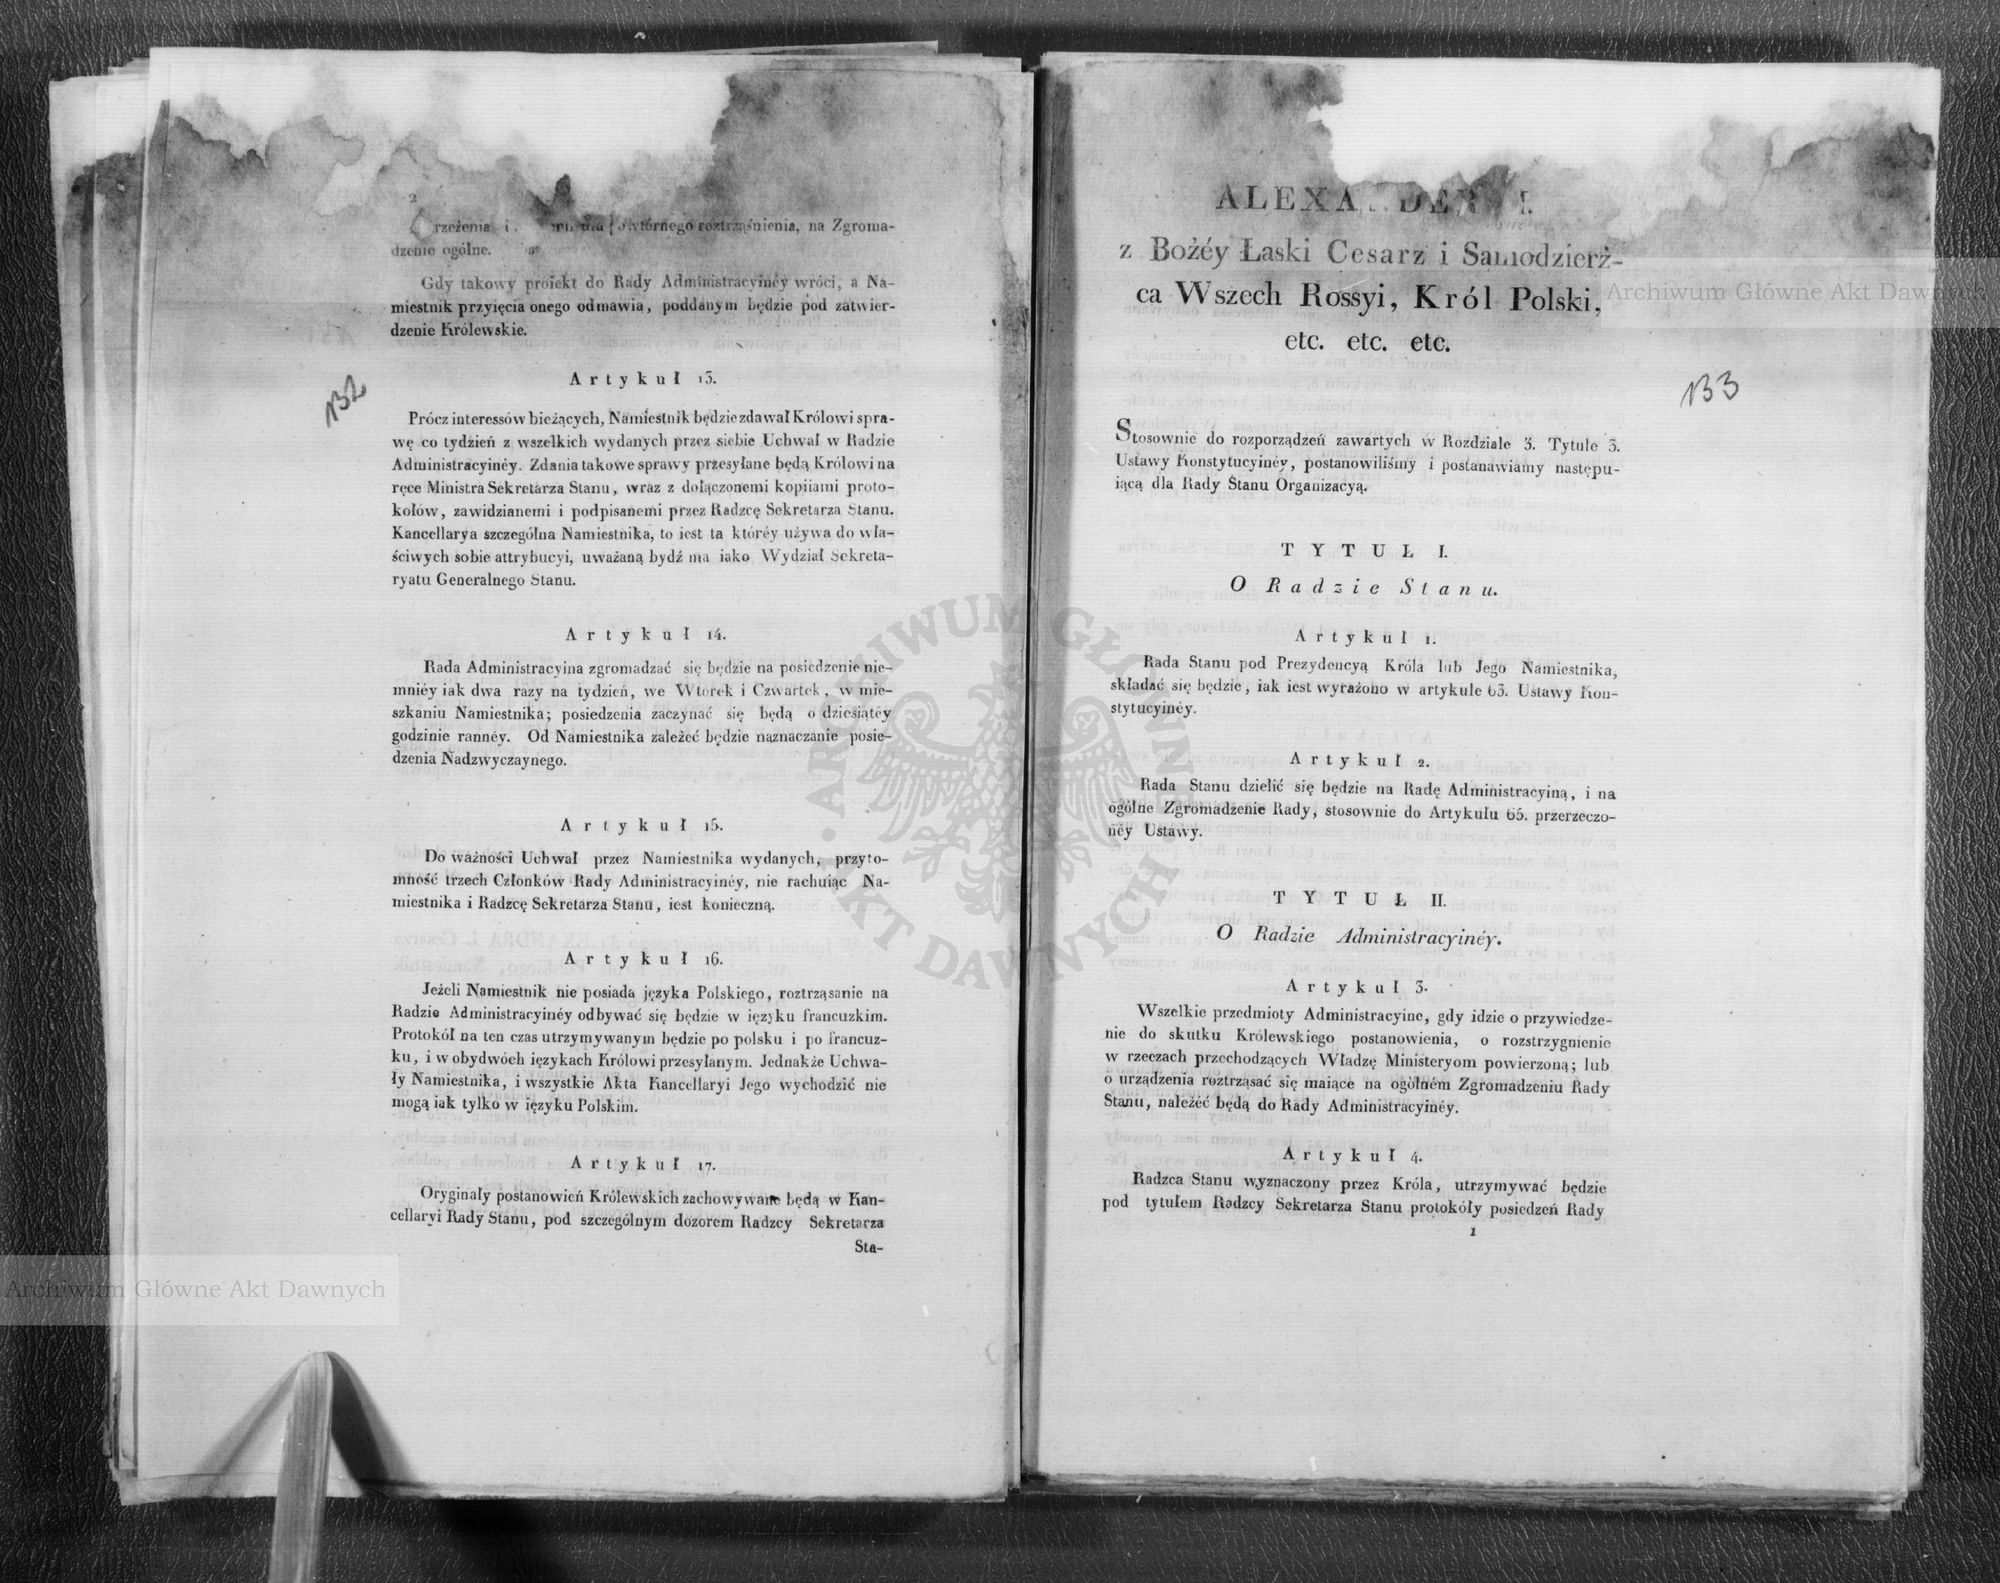 2
rzeżenia i powtórnego roztrząśnienia, na Zgroma-
dzenie ogólne.
Gdy takowy proiekt do Rady Administracyinéy wróci, a Na-
miestnik przyięcia onego odmawia, poddanym będzie pod zatwier-
dzenie Królewskie.
Artykuł 13.
Prócz interessów bieżących, Namiestnik będzie zdawał Królowi spra-
wę co tydzień z wszelkich wydanych przez siebie Uchwał w Radzie
Administracyinéy. Zdania takowe sprawy przesyłane będą Królowi na
ręce Ministra Sekretarza Stanu, wraz z dołączonemi kopiiami proto-
kołów, zawidzianemi i podpisanemi przez Radzcę Sekretarza Stanu.
Kancellarya szczególna Namiestnika, to iest ta któréy używa do wła-
ściwych sobie attrybucyi, uważaną bydź ma iako Wydział Sekreta-
ryatu Generalnego Stanu.
Artykuł 14.
Rada Administracyina zgromadzać się będzie na posiedzenie nie-
mniéy iak dwa razy na tydzień, we Wtorek i Czwartek, w mie-
szkaniu Namiestnika; posiedzenia zaczynać się będą o dziesiątéy
godzinie rannéy. Od Namiestnika zależeć będzie naznaczanie posie-
dzenia Nadzwyczaynego.
Artykuł 15.
Do ważności Uchwał przez Namiestnika wydanych, przyto-
mność trzech Członków Rady Administracyinéy, nie rachuiąc Na-
miestnika i Radzcę Sekretarza Stanu, iest konieczną.
Artykuł 16.
Jeżeli Namiestnik nie posiada języka Polskiego, roztrząsanie na
Radzie Administracyinéy odbywać się będzie w ięzyku francuzkim.
Protokół na ten czas utrzymywanym będzie po polsku i po francuz-
ku, i w obydwóch ięzykach Królowi przesyłanym. Jednakże Uchwa-
ły Namiestnika, i wszystkie Akta Kancellaryi Jego wychodzić nie
mogą iak tylko w ięzyku Polskim.
Artykuł 17.
Oryginały postanowień Królewskich zachowywane będą w Kan-
cellaryi Rady Stanu, pod szczególnym dozorem Radzcy Sekretarza
Sta-
132
ALEXANDER I.
z Bożéy Łaski Cesarz i Samodzierż-
ca Wszech Rossyi, Król Polski,
etc. etc. etc.
133
Stosownie do rozporządzeń zawartych w Rozdziale 3. Tytule 3.
Ustawy Konstytucyinéy, postanowiliśmy i postanawiamy następu-
iącą dla Rady Stanu Organizacyą.
TYTUŁ I.
O Radzie Stanu.
Artykuł 1.
Rada Stanu pod Prezydencyą Króla lub Jego Namiestnika,
składać się będzie, iak iest wyrażono w artykule 63. Ustawy Kon-
stytucyinéy.
Artykuł 2.
Rada Stanu dzielić się będzie na Radę Administracyiną, i na
ogólne Zgromadzenie Rady, stosownie do Artykułu 65. przerzeczo-
néy Ustawy.
TYTUŁ II.
O Radzie Administracyinéy.
Artykuł 3.
Wszelkie przedmioty Administracyine, gdy idzie o przywiedze-
nie do skutku Królewskiego postanowienia, o rozstrzygnienie
w rzeczach przechodzących Władzę Ministeryom powierzoną; lub
o urządzenia roztrząsać się maiące na ogólném Zgromadzeniu Rady
Stanu, należéć będą do Rady Administracyinéy.
Artykuł 4.
Radzca Stanu wyznaczony przez Króla, utrzymywać będzie
pod tytułem Radzcy Sekretarza Stanu protokóły posiedzeń Rady
1
Archiwum Główne Akt Dawnych
Archiwum Główne Akt Dawnych
ARCHIWUM GŁÓWNE AKT DAWNYCH